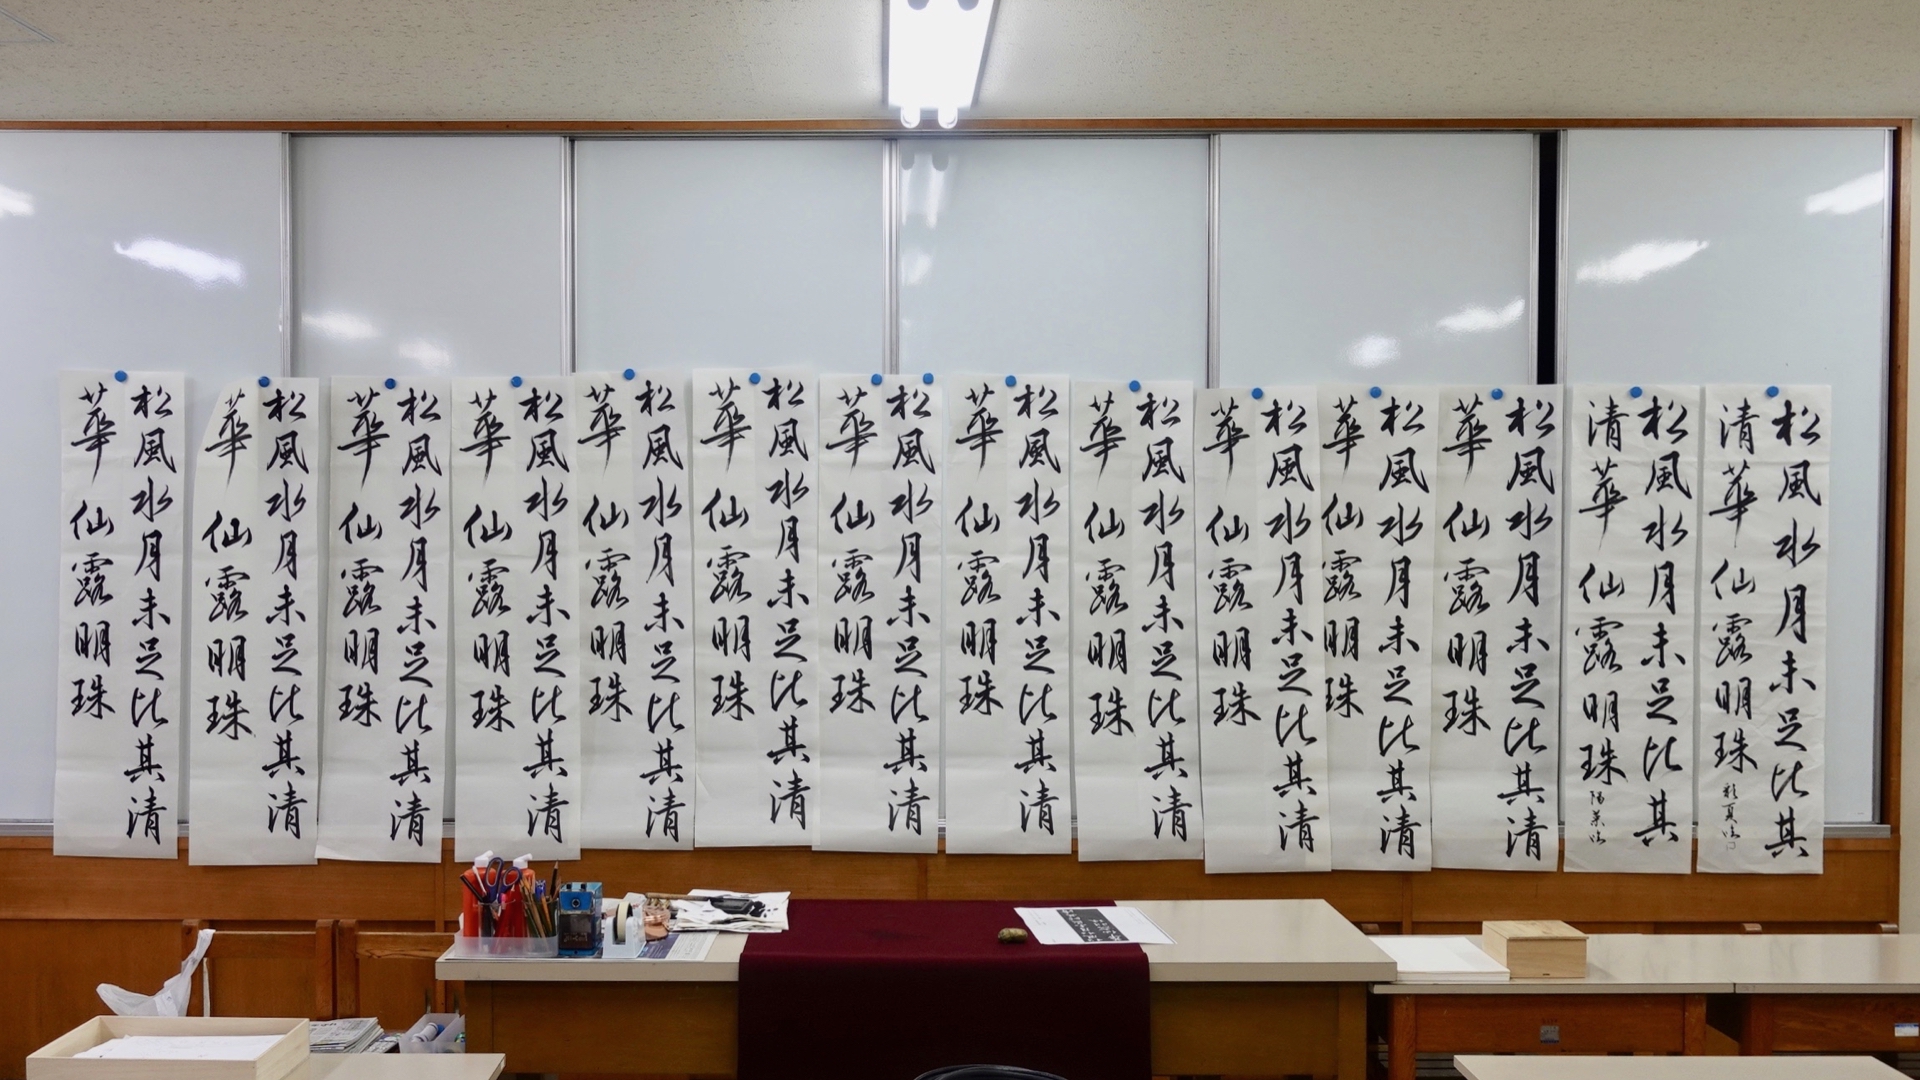 松風水月未足比其
清華仙露明珠
松風水月未足比其
清華仙露明珠
松風水月未足比其清
華仙露明珠
松風水月未足比其清
華仙露明珠
松風水月未足比其清
華仙露明珠
松風水月未足比其清
華仙露明珠
松風水月未足比其清
華仙露明珠
松風水月未足比其清
華仙露明珠
松風水月未足比其清
華仙露明珠
松風水月未足比其清
華仙露明珠
松風水月未足比其清
華仙露明珠
松風水月未足比其清
華仙露明珠
松風水月未足比其清
華仙露明珠
松風水月未足比其清
華仙露明珠